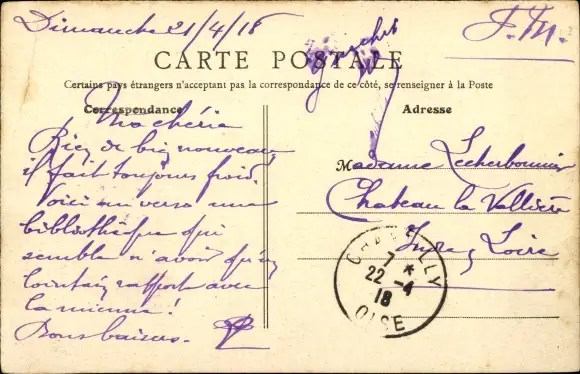 Dimanche 21/4/18
F.M.
CARTE POSTALE
Certains pays étrangers n'acceptent pas la correspondance de ce côté, se renseigner à la Poste
Correspondance
Adresse
Ma chérie
Rien de bien nouveau
il fait toujours froid.
Voici au verso une
bibliothèque qui
semble n'avoir qu'un
lointain rapport avec
la mienne!
Bons baisers.
Madame Lecherbonnier
Chateau la Vallière
Indre & Loire
CHANTILLY
7 *
22 -4
18
OISE